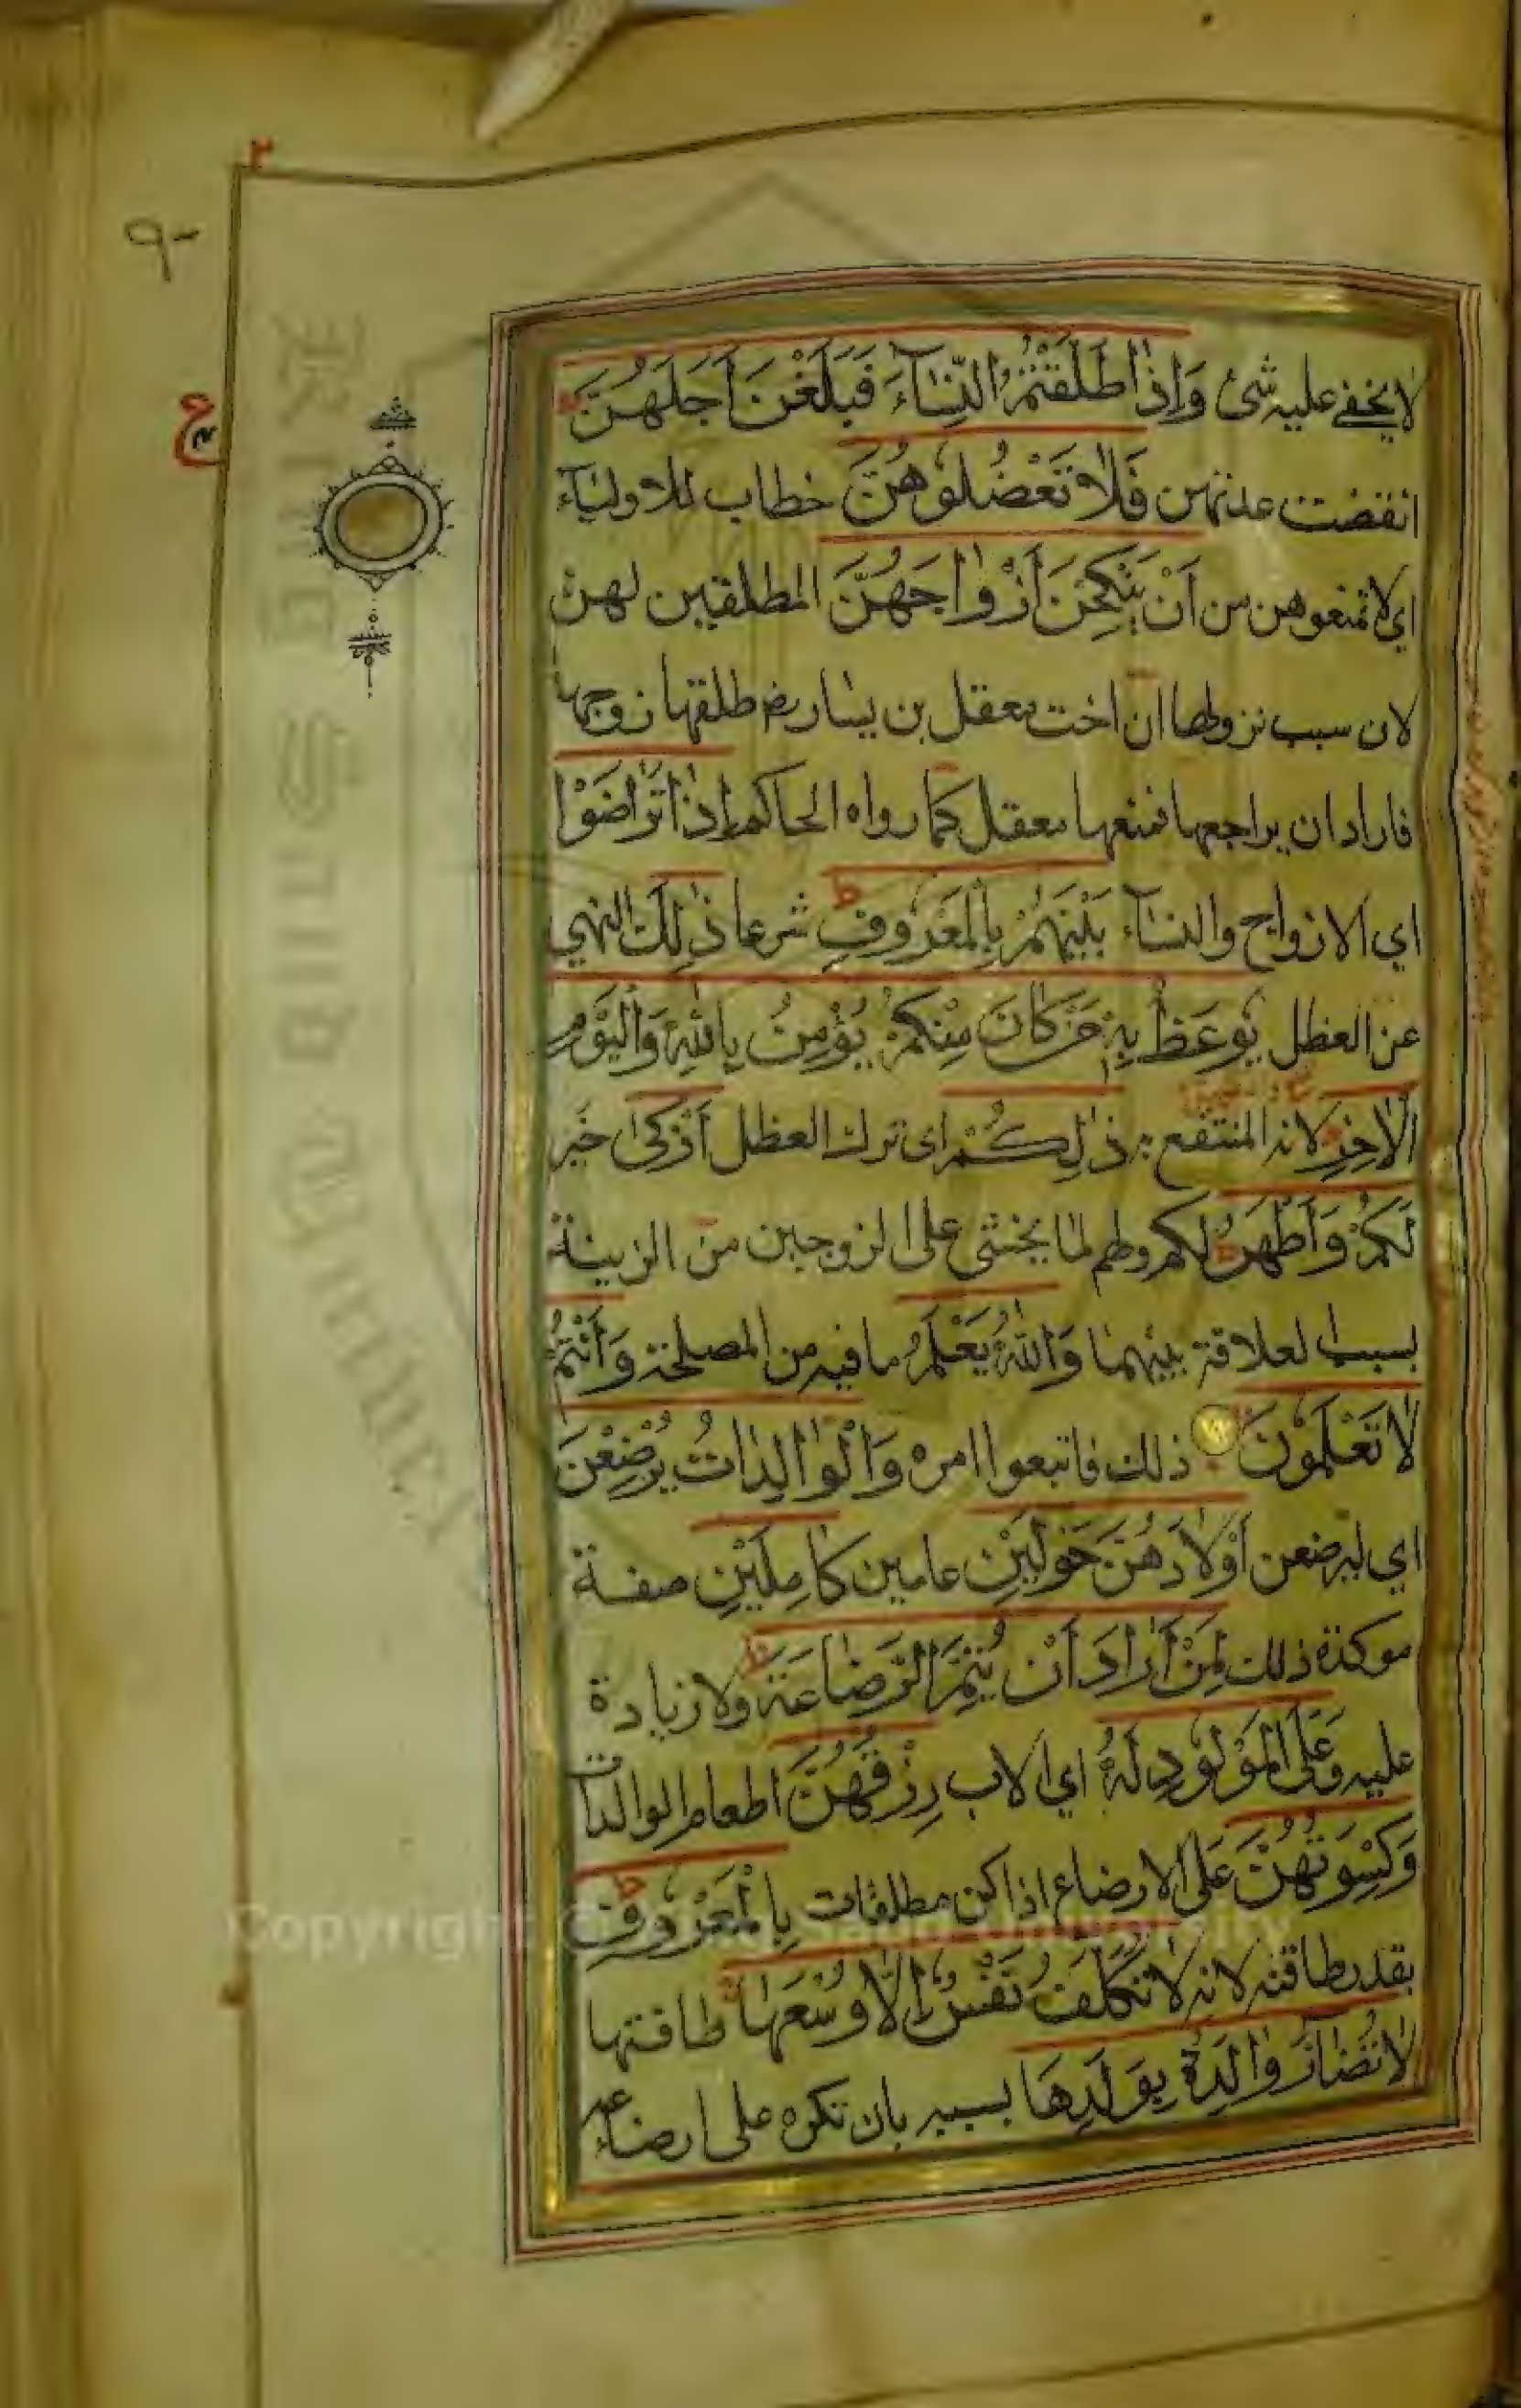 ٢
٩
ع
لا يخفى عليه شئ وَإِذَا طَلَّقْتُمُ النِّسَآءَ فَبَلَغْنَ أَجَلَهُنَّ
انقضت عدتهن فَلَا تَعْضُلُوهُنَّ خطاب للاولياء
اي لا تمنعوهن من أَنْ يَنْكِحْنَ أَزْوَاجَهُنَّ المطلقين لهن
لان سبب نزولها ان اخت معقل بن يسار رض طلقها زوجها
فاراد ان يراجعها فمنعها معقل كما رواه الحاكم إِذَا تَرَاضَوْا
اي الازواج والنساء بَيْنَهُمْ بِالْمَعْرُوفِ ط شرعا ذٰلِكَ النهي
عن العظل يُوعَظُ بِهِ مَنْ كَانَ مِنْكُمْ يُؤْمِنُ بِاللّٰهِ وَالْيَوْمِ
الْآخِرِ لانه المنتفع به ذٰلِكُمْ اى ترك العظل أَزْكٰى خير
لَكُمْ وَأَطْهَرُ ط لكم ولهم لما يخشى على الزوجين من الزينة
بسبب العلاقة بينهما وَاللّٰهُ يَعْلَمُ ما فيه من المصلحة وَأَنْتُمْ
لَا تَعْلَمُونَ ذلك فاتبعوا امره وَالْوَالِدَاتُ يُرْضِعْنَ
اي ليرضعن أَوْلَادَهُنَّ حَوْلَيْنِ عامين كَامِلَيْنِ صفة
موكدة ذلك لِمَنْ أَرَادَ أَنْ يُتِمَّ الرَّضَاعَةَ ط ولا زيادة
عليه وَعَلَى الْمَوْلُودِ لَهُ اي الاب رِزْقُهُنَّ اطعام الوالدات
وَكِسْوَتُهُنَّ على الارضاع اذا كن مطلقات بِالْمَعْرُوفِ ط
بقدر طاقته لانه لَا تُكَلَّفُ نَفْسٌ إِلَّا وُسْعَهَا طاقتها
لَا تُضَارَّ وَالِدَةٌ بِوَلَدِهَا بسببه بان تكره على ارضاعه
Copyright © King Saud University